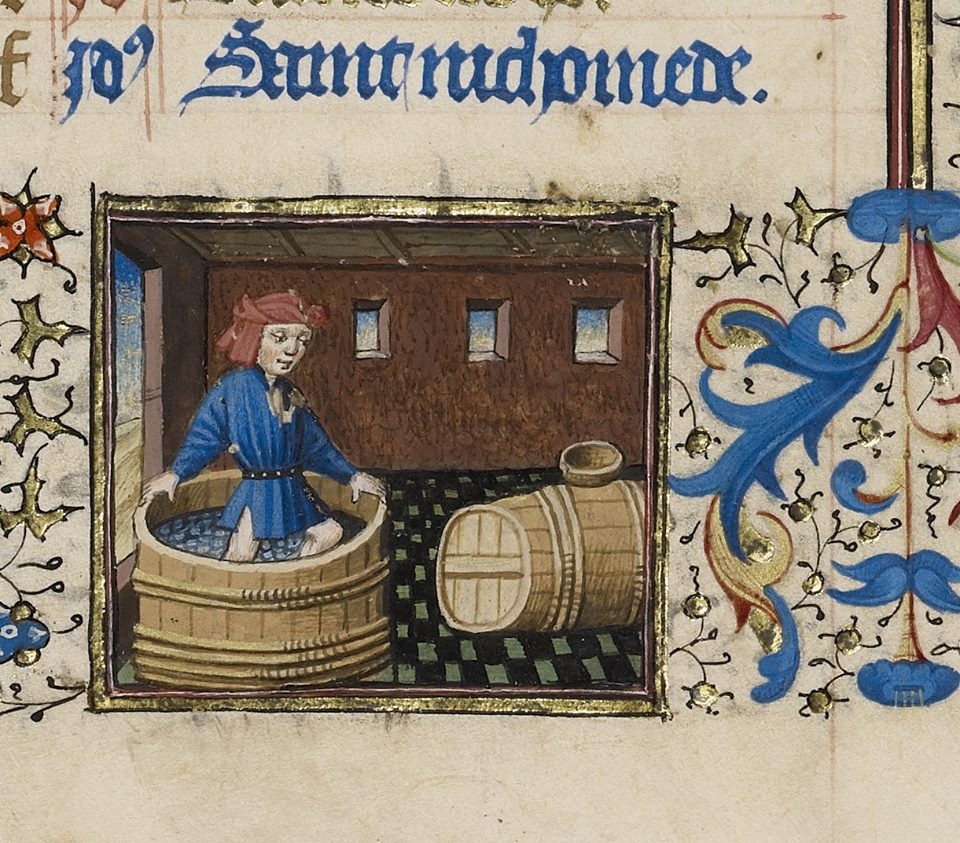 f jdꝰ Saint nichomede.